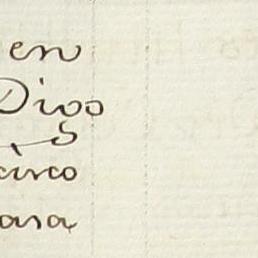 en
Dios
cisco
asa